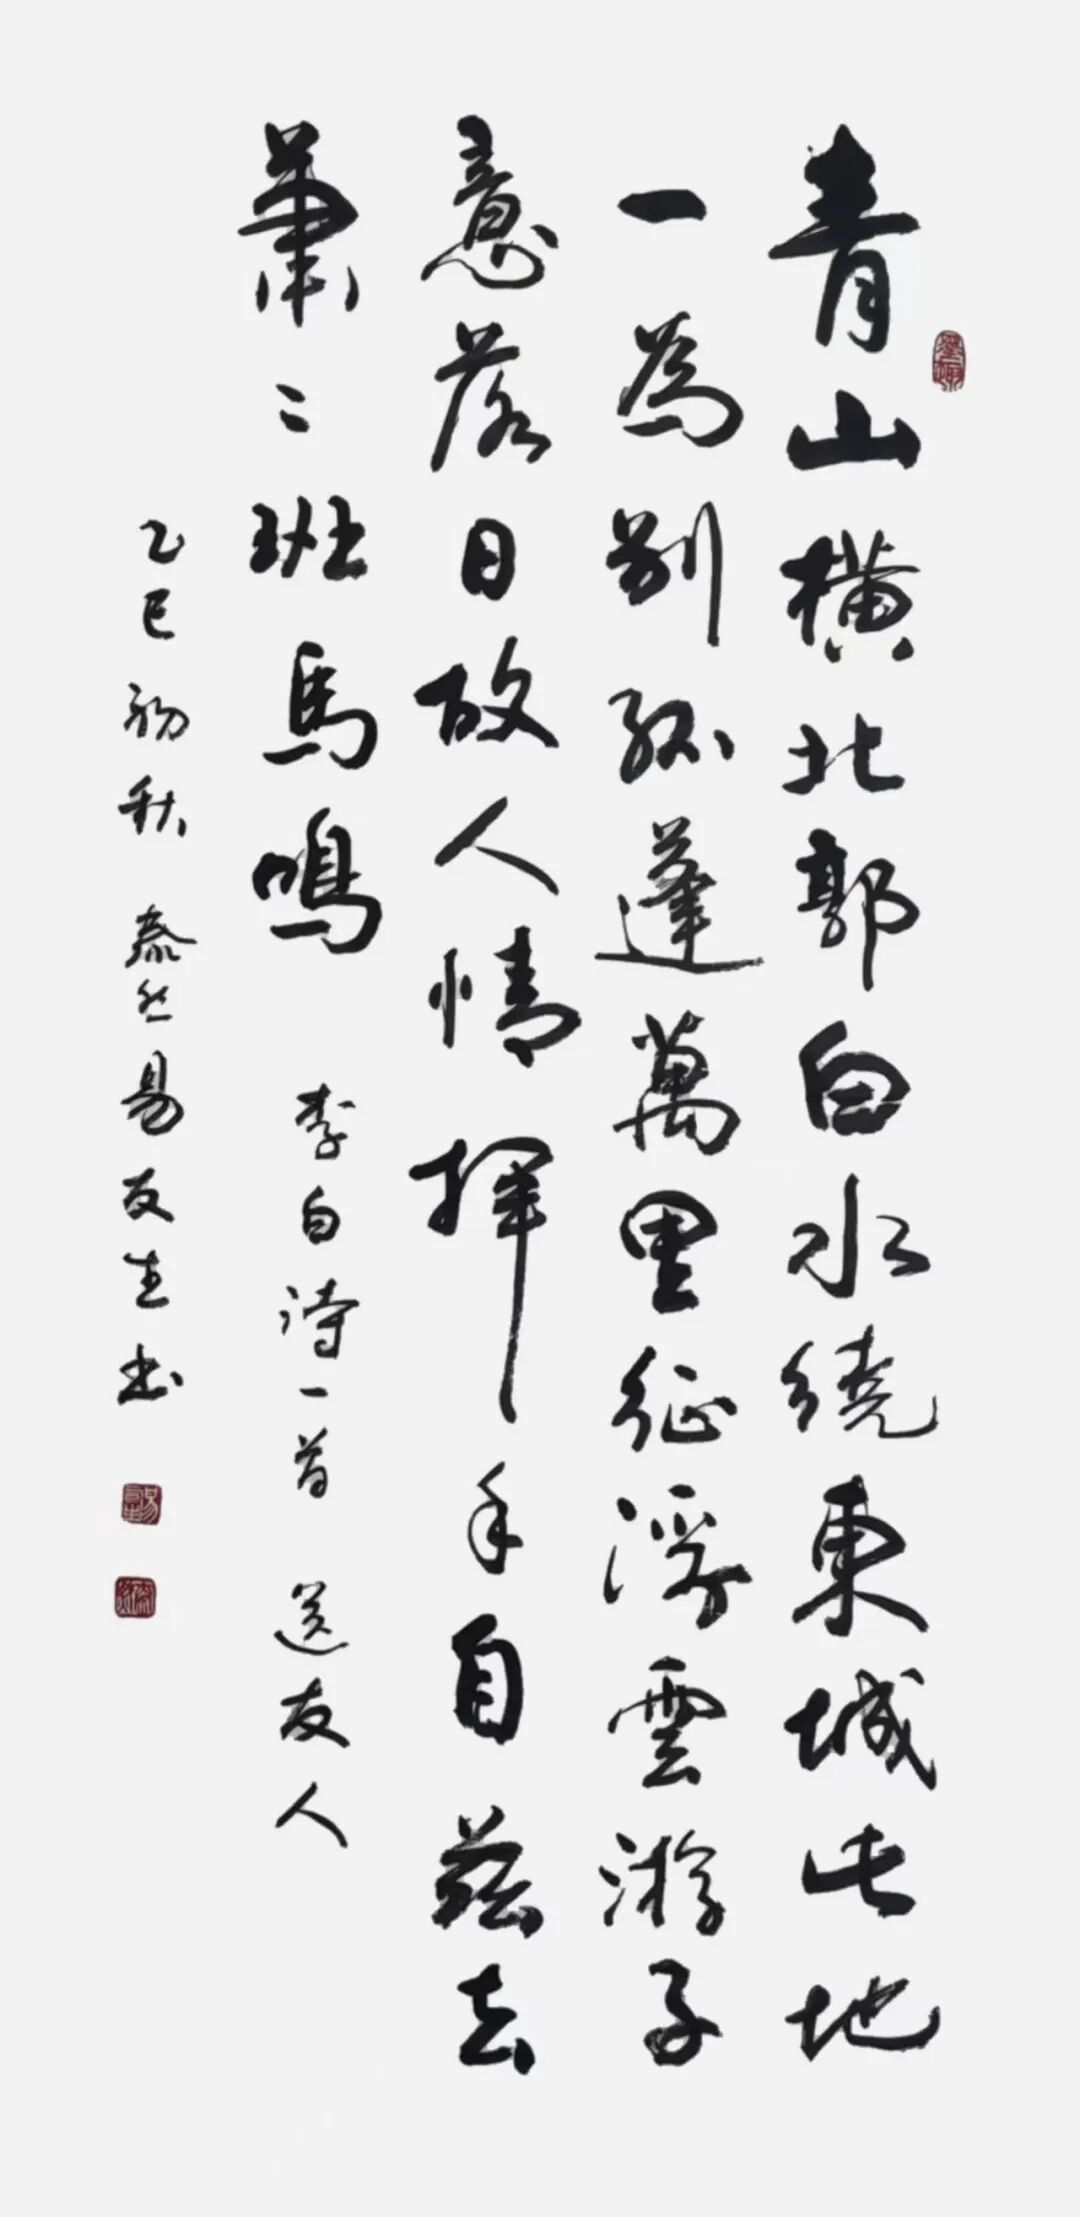 青山橫北郭白水繞東城此地
一為別孤蓬萬里征浮雲游子
意落日故人情揮手自茲去
蕭〻班馬鳴 李白詩一首 送友人
乙巳初秋 泰然易友生书